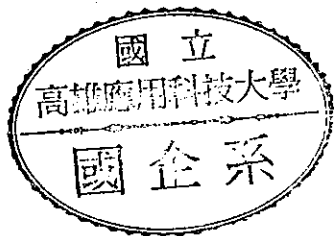 國立
高雄應用科技大學
國企系